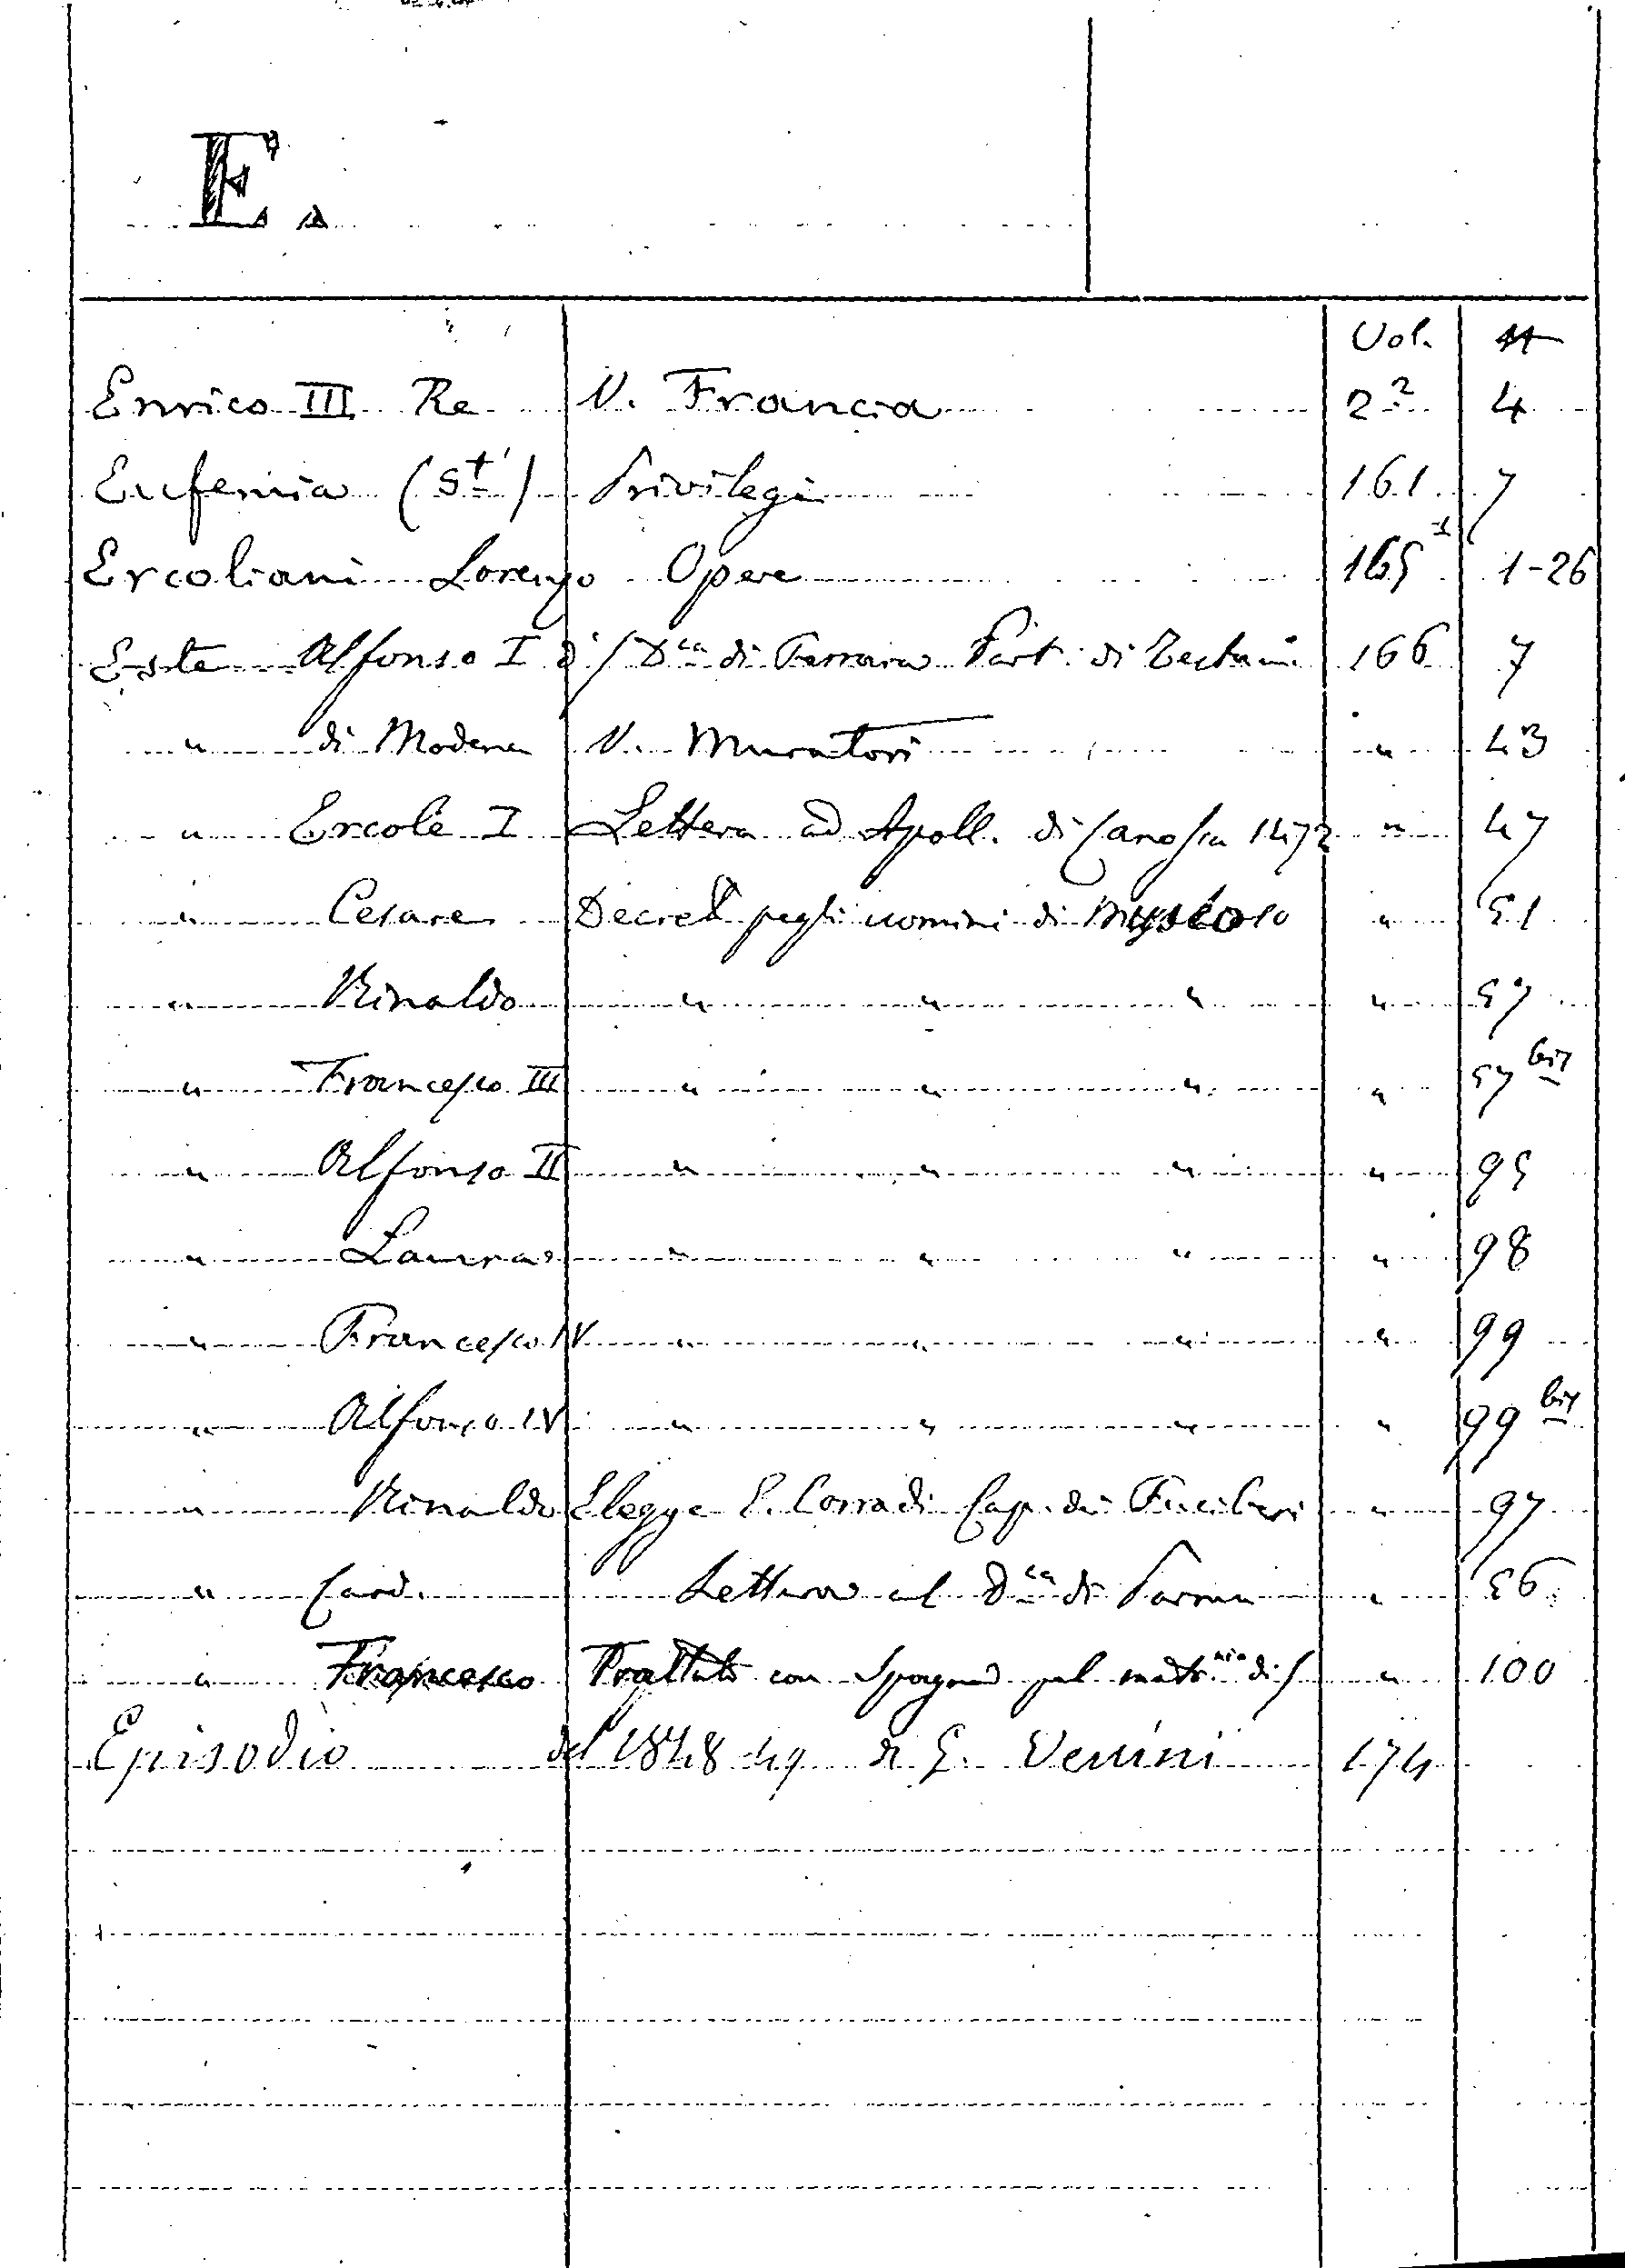 E.
Vol. #
Enrico III Re V. Francia 2² 4
Eufemia (Sᵗ) Privilegi 161 7
Ercoliani Lorenzo Opere 165¹ 1-26
Este Alfonso I d'/Dᶜᵃ di Ferrara Part. di 166 7
" di Modena V. Muratori " 43
" Ercole I Lettera ad Apoll. di Canossa 1472 " 47
" Cesare Decreti pegli uomini di " 51
" Rinaldo " " " " 57
" Francesco III " " " " 57 bis
" Alfonso II " " " " 95
" Laura " " " " 98
" Francesco IV " " " " 99
" Alfonso IV " " " " 99 bis
" Rinaldo Elegge C. Corradi Cap. dei Fucilieri " 97
" Card. Lettera al Dᶜᵃ di Parma " 56
" Francesco Trattato con Spagna pel matrⁿⁱᵒ di/ " 100
Episodio del 1848-49 di G. Venini 174